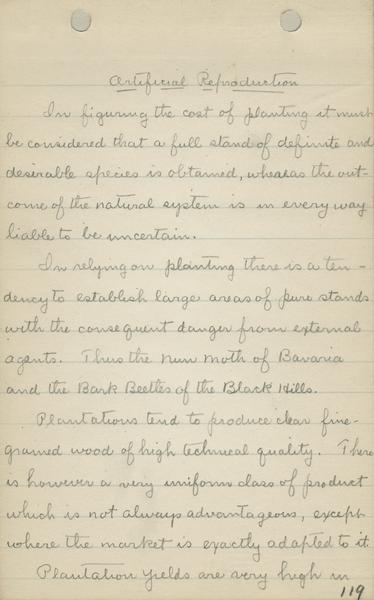 Artificial Reproduction
In figuring the cost of planting it must
be considered that a full stand of definite and
desirable species is obtained, whereas the out-
come of the natural system is in every way
liable to be uncertain.
In relying on planting there is a ten-
dency to establish large areas of pure stands
with the consequent danger from external
agents. Thus the Nun Moth of Bavaria
and the Bark Beetles of the Black Hills.
Plantations tend to produce clear fine-
grained wood of high technical quality. There
is however a very uniform class of product
which is not always advantageous, except
where the market is exactly adapted to it.
Plantation yields are very high in
119